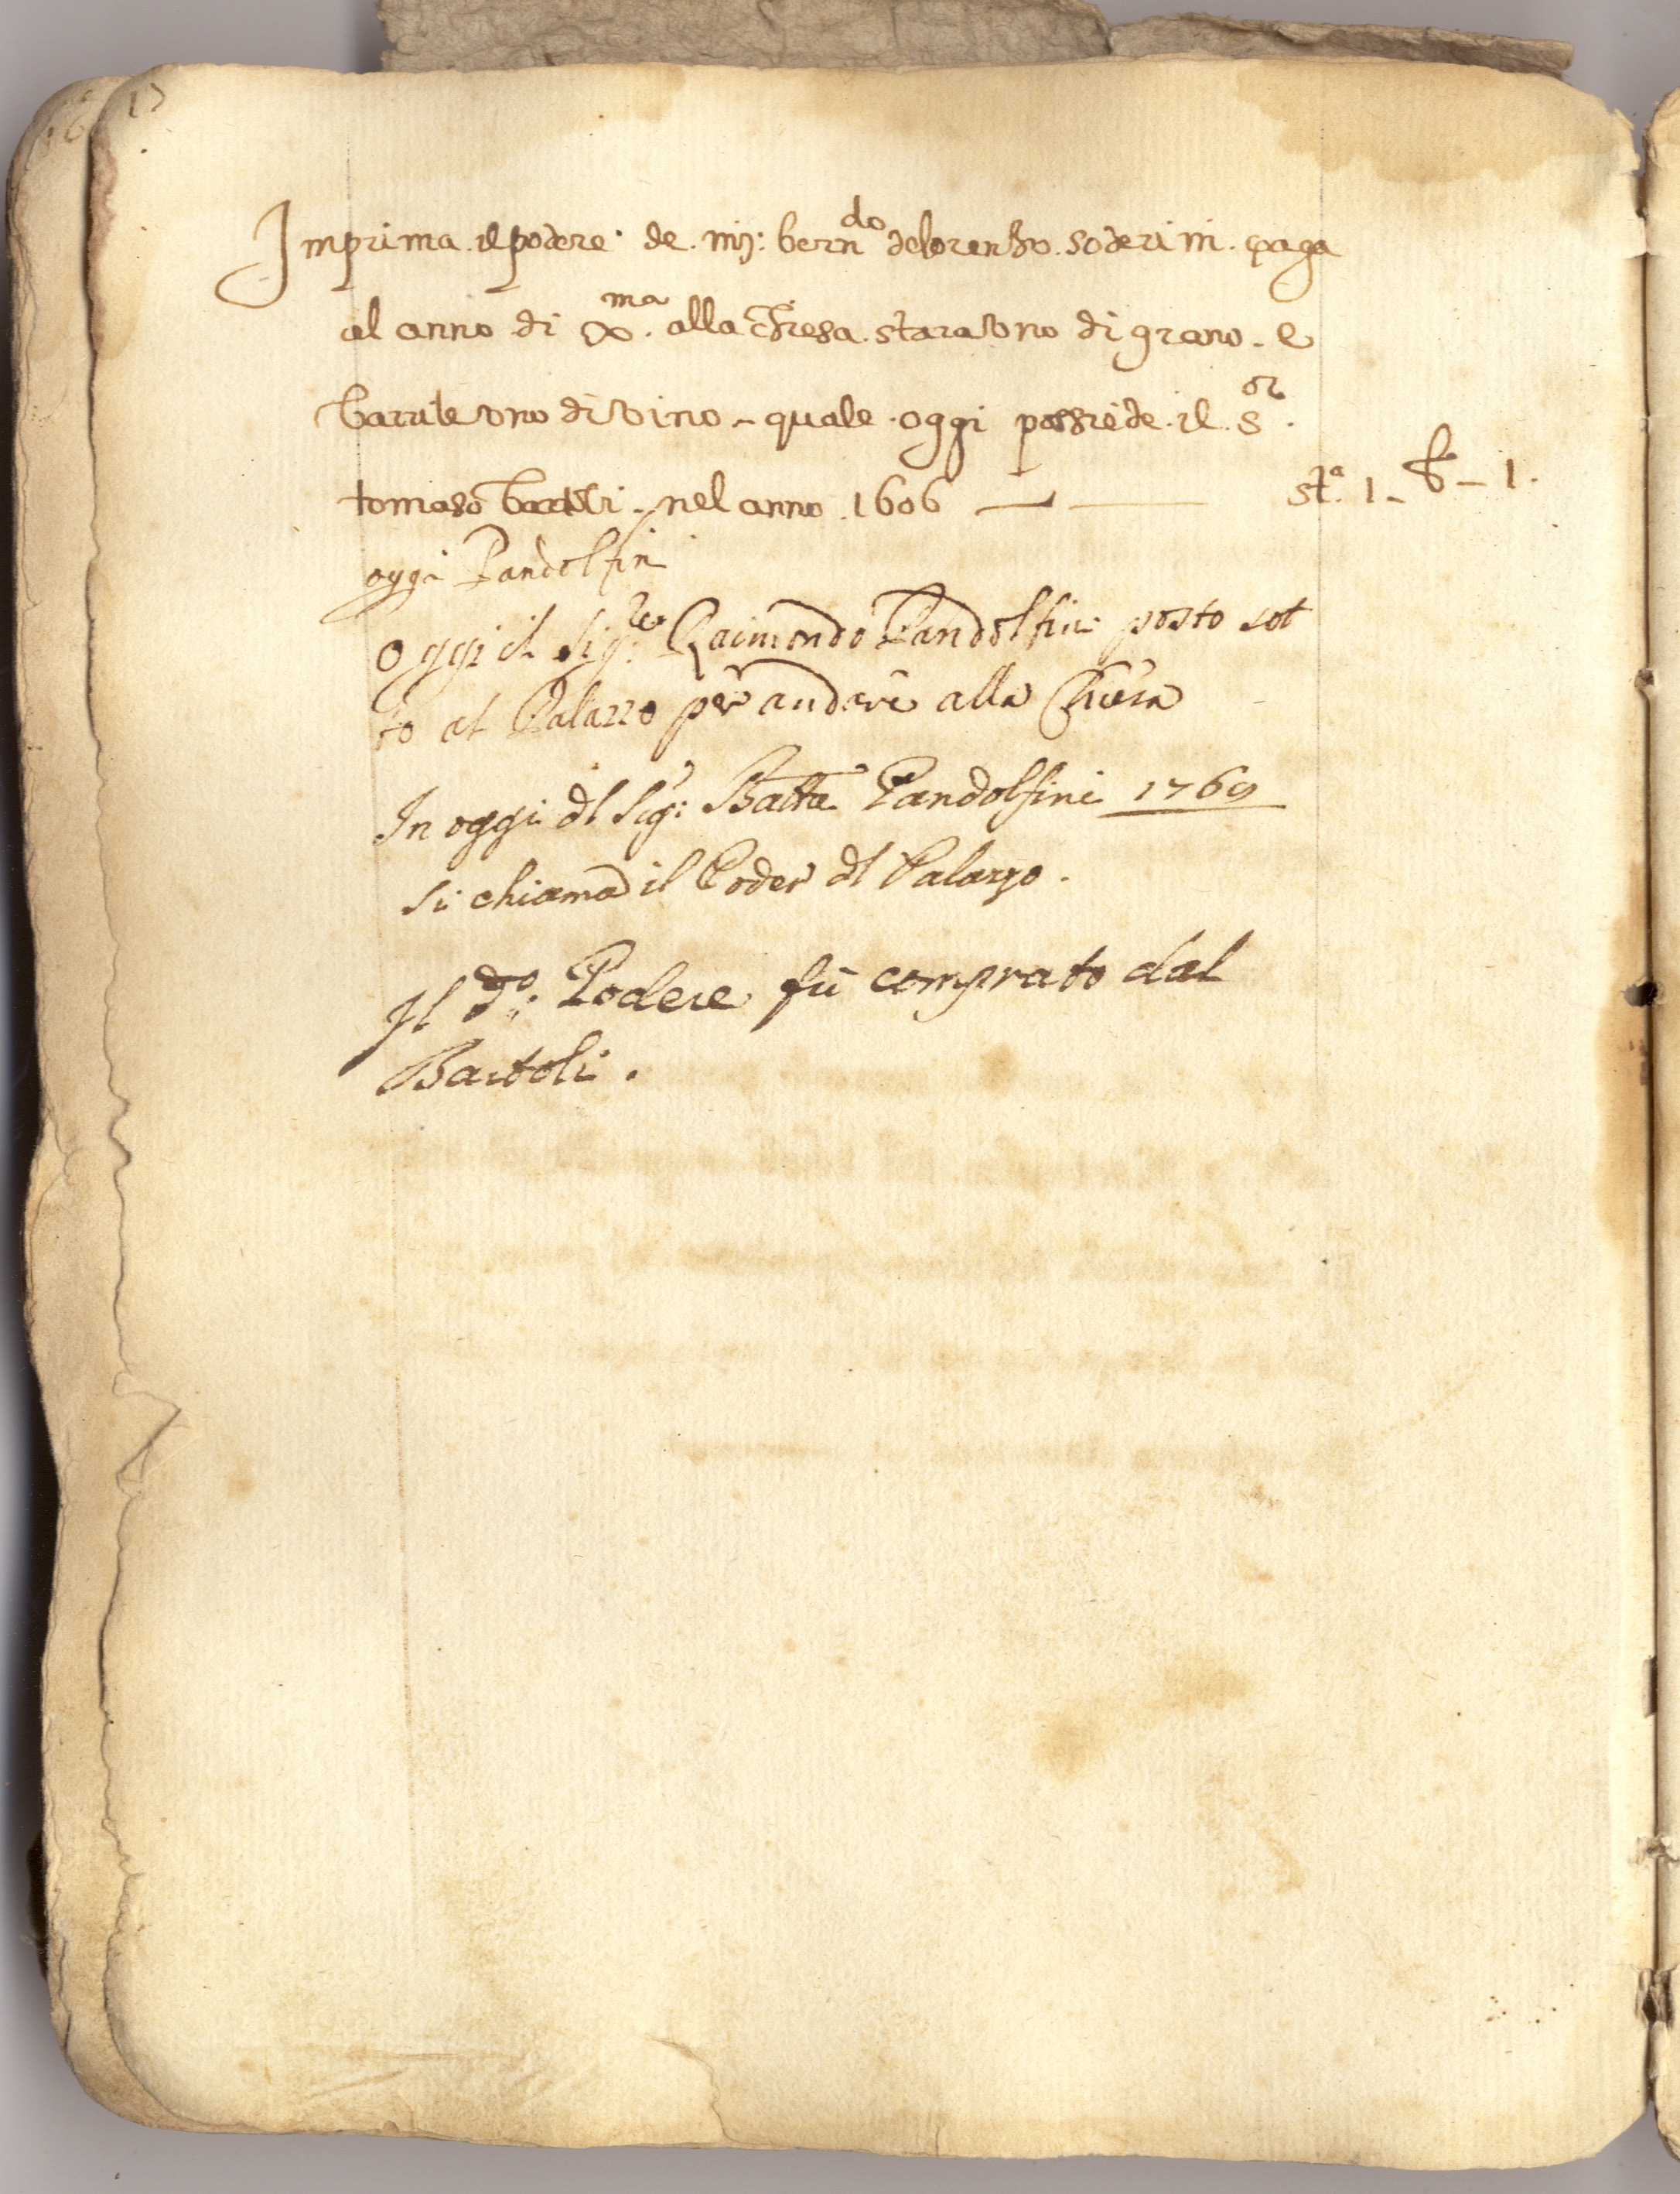 17
Imprima il podere de m: bern^do de lorenzo soderini paga
al anno di X^ma. alla chiesa stara uno di grano - e
barrile uno di vino - quale oggi possiede il S^or.
tomaso bartoli - nel anno 1606 — st^a. 1 - b - 1.
oggi Pandolfini
Oggi il Sig^re Raimondo Pandolfini posto sot
to al Palazzo per andare alla Chiesa
In oggi dl Sig: Batta Pandolfini 1769
si chiama il Poder dl Palazzo.
Il do: Podere fù comprato dal
Bartoli.